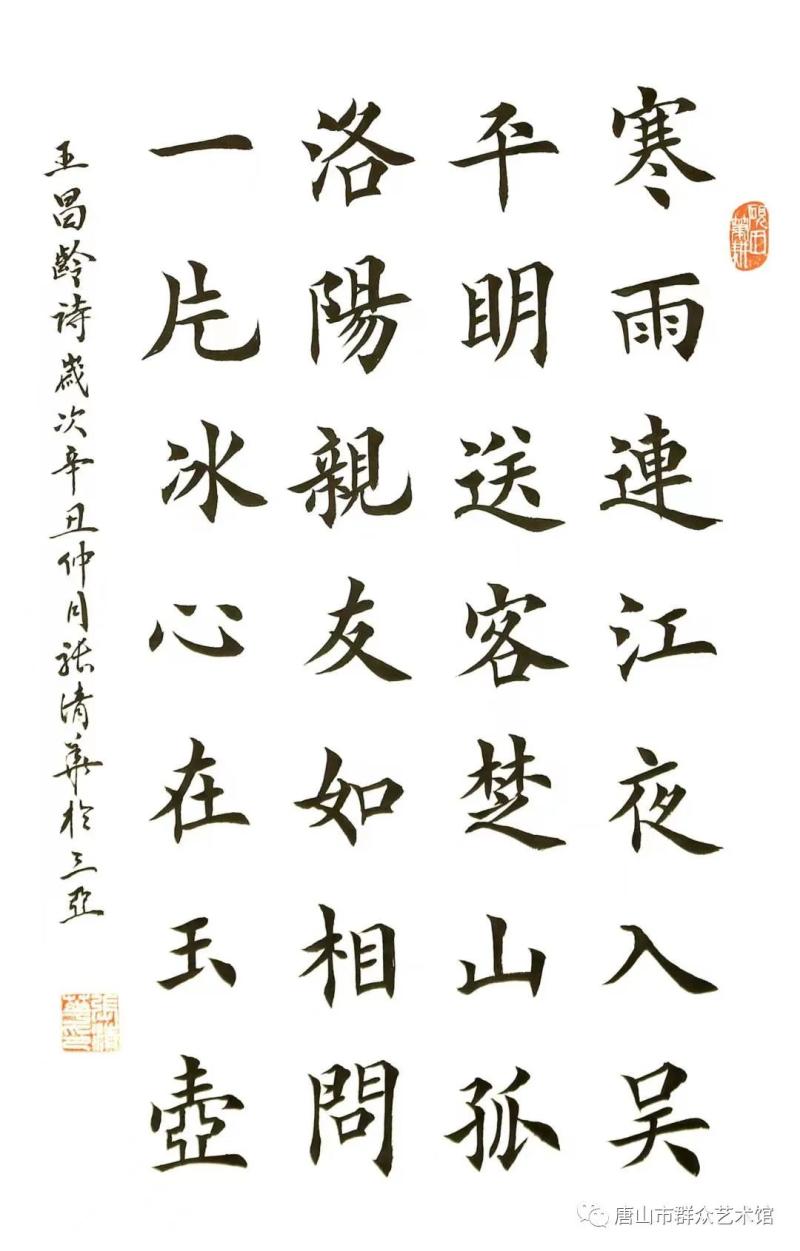 寒雨連江夜入吴
平明送客楚山孤
洛陽親友如相問
一片冰心在玉壺
王昌齡詩歲次辛丑仲月張清華於三亞
硯田筆耕
張清華印
唐山市群众艺术馆